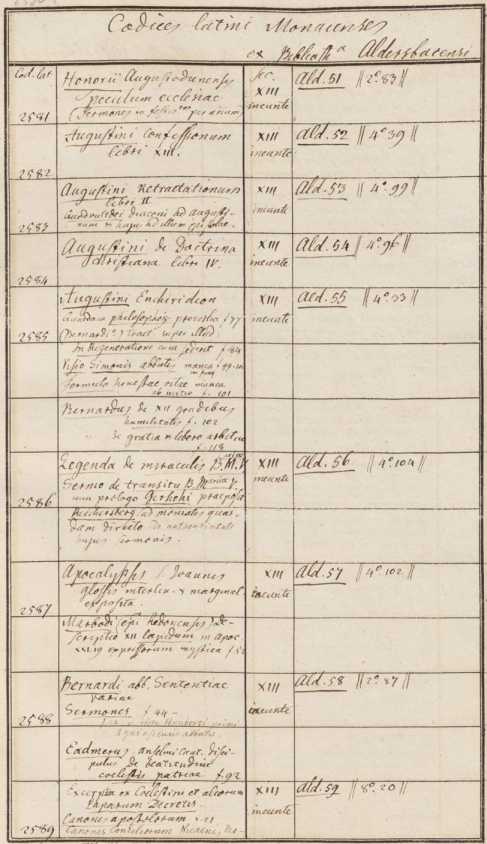 Codices latini Monacenses
ex Biblioth^a Aldersbacensi
Cod. lat
2581
Honorii Augustodunensis
Speculum ecclesiae
(Sermones in festis per annum)
sec.
XIII
ineunte
Ald. 51 || 2° 83 ||
2582
Augustini Confessionum
libri XIII.
XIII
ineunte
Ald. 52 || 4° 39 ||
2583
Augustini Retractationum
libri II
Quodvultdei diaconi ad Augusti-
num & hujus ad illum epistolae.
XIII
ineunte
Ald. 53 || 4° 99 ||
2584
Augustini de Doctrina
christiana libri IV.
XIII
ineunte
Ald. 54 || 4° 96 ||
2585
Augustini Enchiridion
philosophis f. 77
Bernardi Tract super illud
In Regeneratione cum sederit f. 84
Visio Simonis abbatis manca f. 99
Formula honestae vitae manca
f. 101
Bernardus de XII gradibus
humilitatis f. 102
de gratia & libero arbitrio
f. 118
XIII
ineunte
Ald. 55 || 4° 33 ||
2586
Legenda de miraculis B. M. V.
Sermo de transitu B. Mariae V.
cum prologo Gerhohi praepositi
Reichersberg. ad moniales quas-
dam directo
hujus sermonis.
XIII
ineunte
Ald. 56 || 4° 104 ||
2587
Apocalypsis S. Joannis
glossis interlin. & marginal.
exposita.
Marbodi epi Redonensis
XII lapidum in apoc.
XXI, 19 expressorum mystica f. 52
XIII
ineunte
Ald. 57 || 4° 102 ||
2588
Bernardi abb. Sententiae
variae
Sermones f. 44 -
abbatis.
Eadmerus Anselmi Cant. disci-
pulus de beatitudine
coelestis patriae f. 92
XIII
ineunte
Ald. 58 || 2° 37 ||
2589
Excerpta ex Coelestini et aliorum
Paparum Decretis.
Canones apostolorum f. 21
Canones Conciliorum Nicaeni,
XIII
ineunte
Ald. 59 || 8° 20 ||